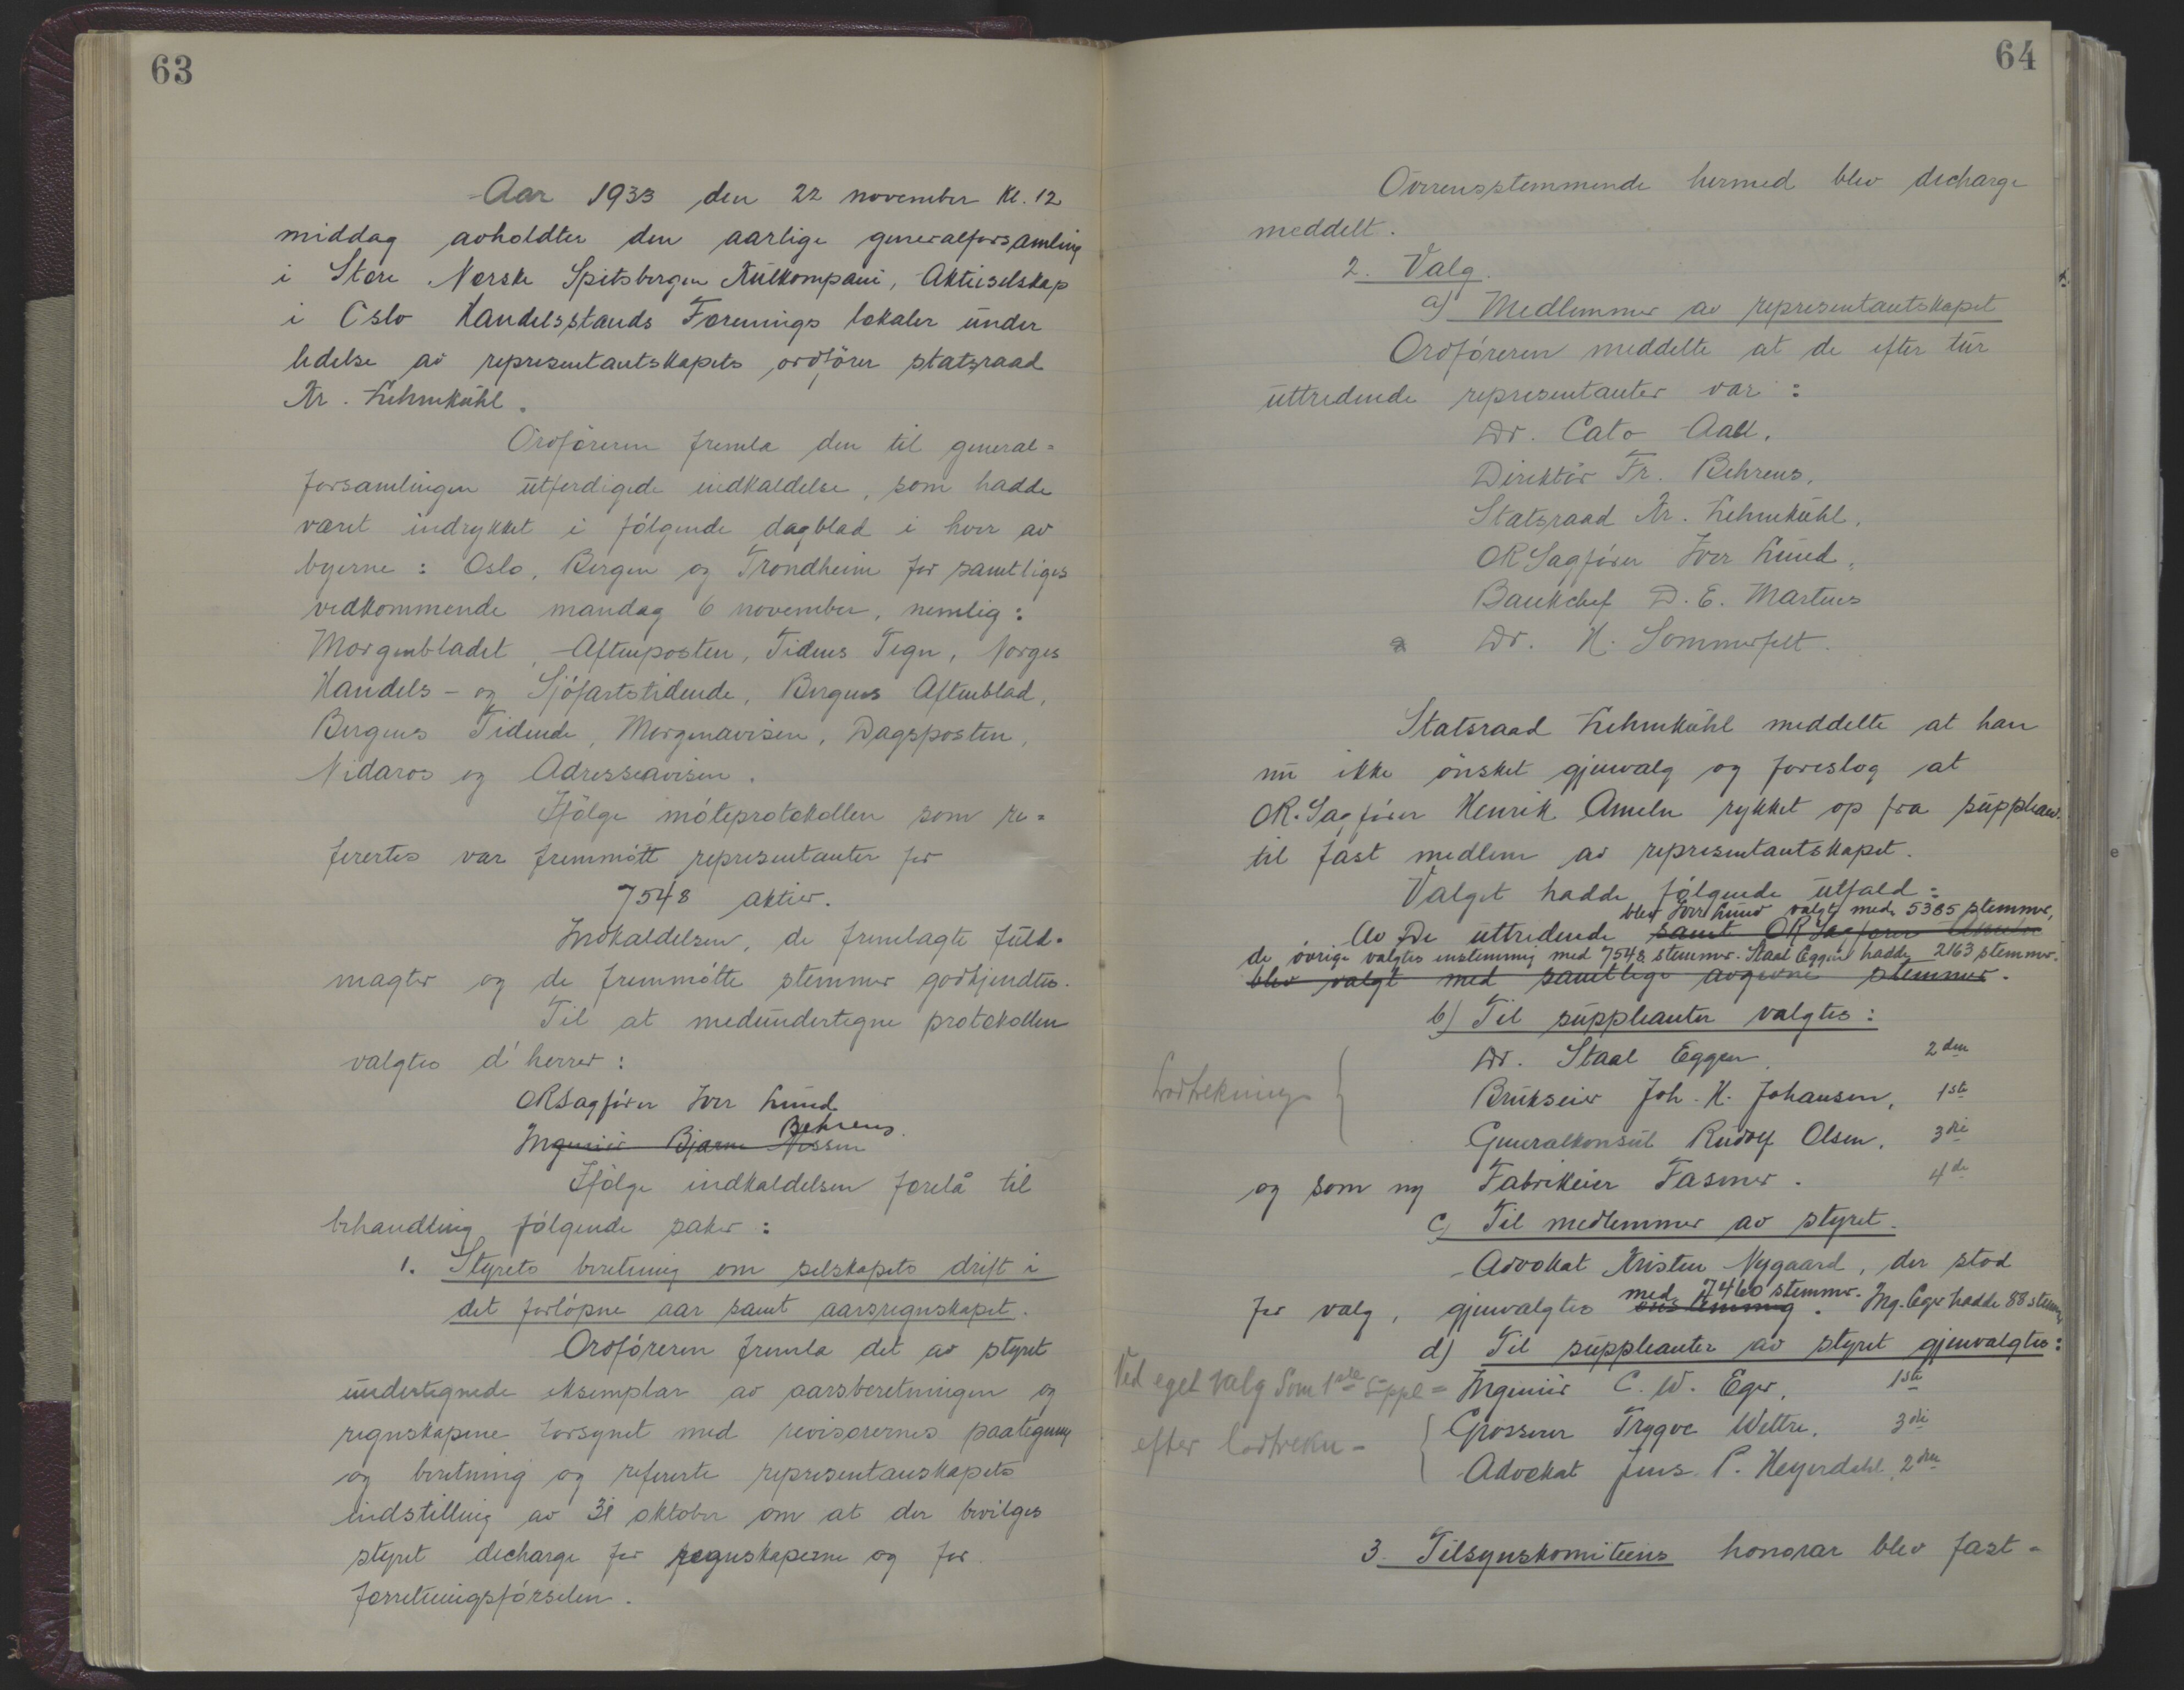 63
Aar 1933 den 22 november kl. 12
middag avholdtes den aarlige generalforsamling
i Store Norske Spitsbergen Kulkompani, Aktieselskap
i Oslo Handelsstands Forenings lokaler under
ledelse av representantskapets ordfører statsraad
Kr. Lehmkühl.
Ordføreren fremla den til general=
forsamlingen utferdigede indkaldelse, som hadde
været indrykket i følgende dagblad i hver av
byerne: Oslo, Bergen og Trondheim for samtliges
vedkommende mandag 6 november, nemlig:
Morgenbladet, Aftenposten, Tidens Tegn, Norges
Handels- og Sjøfartstidende, Bergens Aftenblad,
Bergens Tidende, Morgenavisen, Dagsposten,
Nidaros og Adresseavisen.
Ifølge møteprotokollen som re=
ferertes var fremmøtt representanter for
7548 aktier.
Indkaldelsen, de fremlagte fuld=
magter og de fremmøtte stemmer godkjendtes.
Til at medundertegne protokollen
valgtes d'herrer:
ORSagfører Iver Lund
Behrens.
Ingeniør Bjarne Nissen
Ifølge indkaldelsen forelå til
behandling følgende saker:
1. Styrets beretning om selskapets drift i
det forløpne aar samt aarsregnskapet.
Ordføreren fremla det av styret
undertegnede eksemplar av aarsberetningen og
regnskapene forsynet med revisorernes paategning
og beretning og refererte representanskapets
indstilling av 31 oktober om at der bevilges
styret decharge for regnskaperne og for
forretningsførselen.
64
Overensstemmende hermed blev decharge
meddelt.
2. Valg.
a) Medlemmer av representantskapet
Ordføreren meddelte at de efter tur
uttredende representanter var:
Dr. Cato Aall,
Direktør Fr. Behrens,
Statsraad Kr. Lehmkühl,
ORSagfører Iver Lund,
Bankchef D. E. Martens
Dr. H. Sommerfelt.
Statsraad Lehmkühl meddelte at han
nu ikke ønsket gjenvalg og foreslog at
OR.Sagfører Henrik Ameln rykket op fra suppleant
til fast medlem av representantskapet.
Valget hadde følgende utfald:
blev Iver Lund valgt med 5385 stemmer,
Av De uttredende samt ORSagfører Ameln
de øvrige valgtes enstemmig med 7548 stemmer. Staal Eggen hadde 2163 stemmer.
blev valgt med samtlige avgivne stemmer.
b) Til suppleanter valgtes:
Dr. Staal Eggen. 2den
Lodtrekning
Brukseier Joh. H. Johansen, 1ste
Generalkonsul Rudolf Olsen. 3die
og som ny Fabrikeier Fasmer. 4de
c) Til medlemmer av styret.
Advokat Kristen Nygaard, der stod
med 7460 stemmer.
for valg, gjenvalgtes enstemmig. Ing. Eger hadde 88 stemmer
d) Til suppleanter av styret gjenvalgtes:
Ved eget valg som 1ste suppl = Ingeniør C. W. Eger, 1ste
Grosserer Trygve Wettre, 3die
efter lodtrekn-
Advokat Jens P. Heyerdahl, 2den
3. Tilsynskomiteens honorar blev fast=